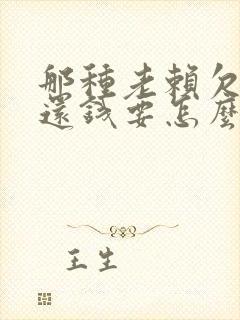 那種老賴欠
還錢要怎麼
王生